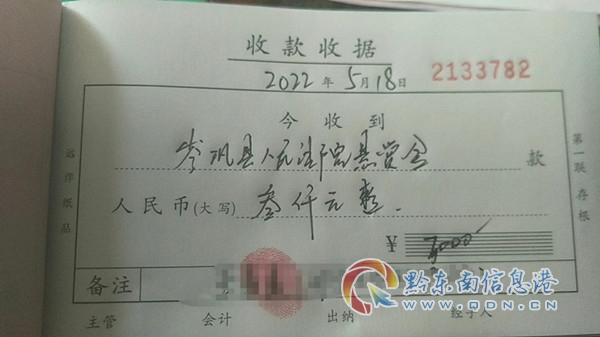 收款收据
2022年5月18日 2133782
今收到
岑巩县人民法院悬赏金 款
人民币(大写) 叁仟元整.
¥ 3000
备注
主管 会计 出纳 经手人
远洋纸品
第一联存根
黔东南信息港
WWW.QDN.CN